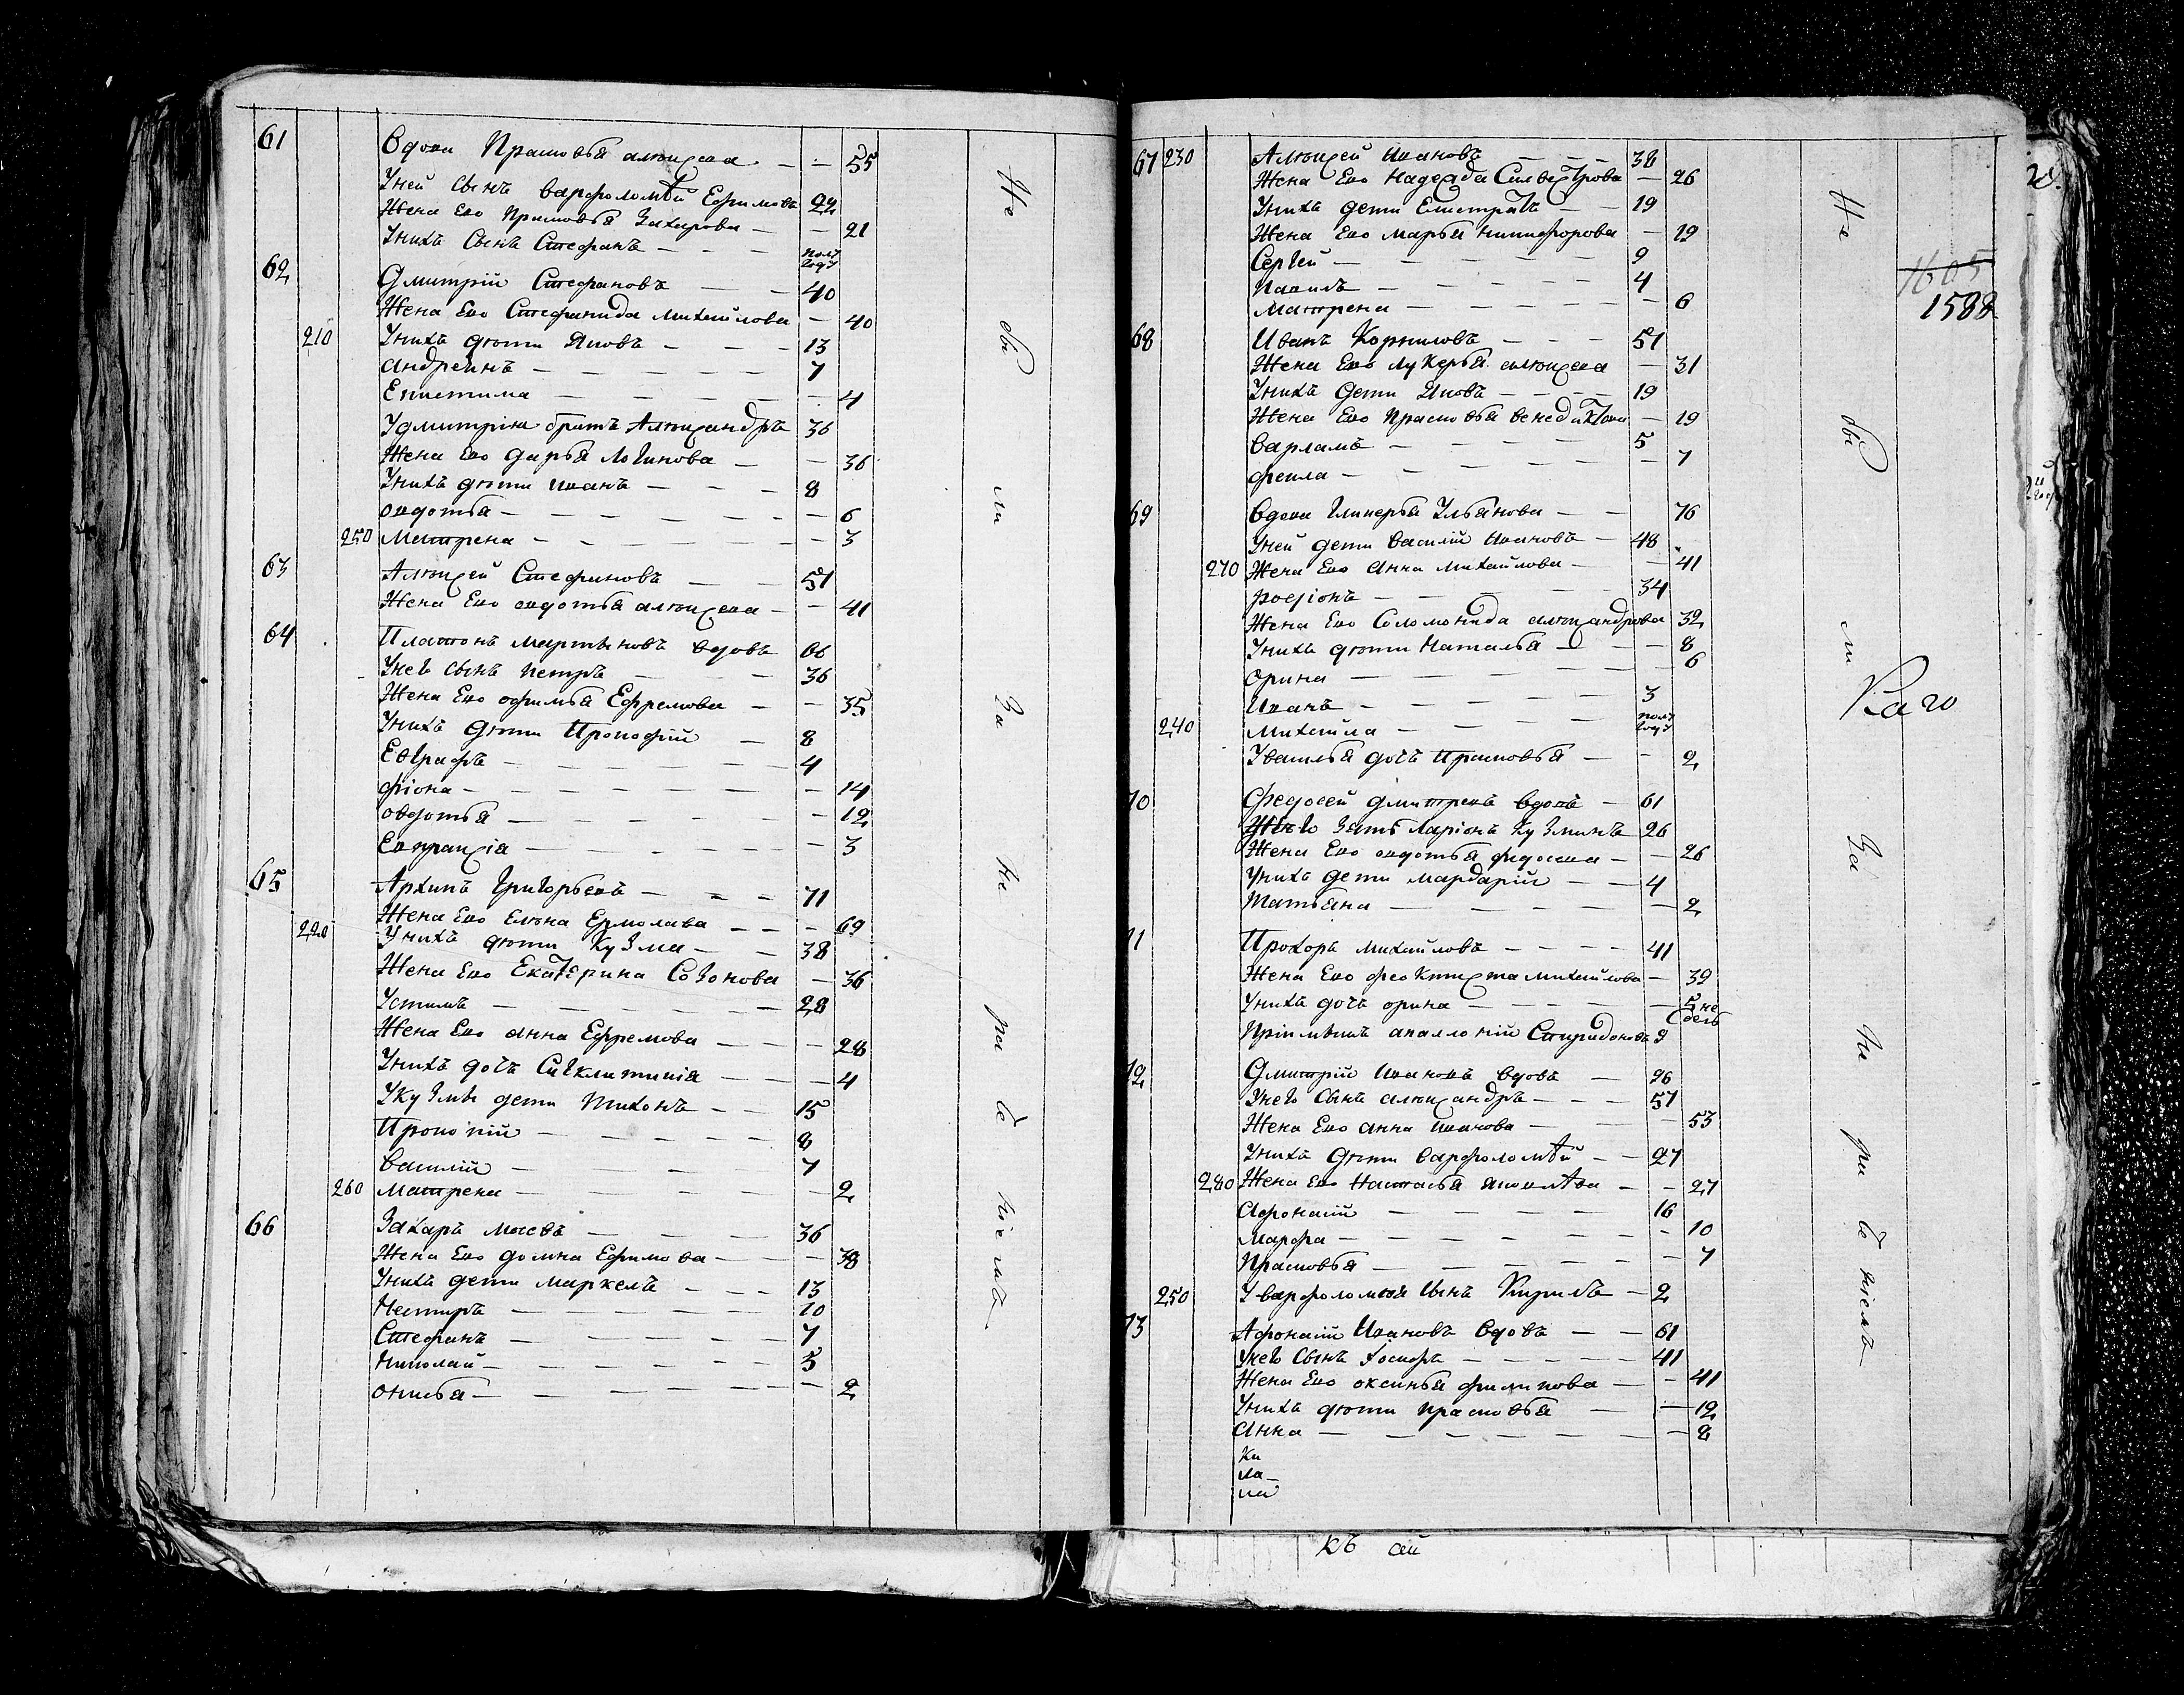 61 Вдова Прасковья алексеева — — 55
Уней сынъ варфоломѣй Ефимовъ 22
Жена Ево Прасковья Захарова — — 21
Унихъ сынъ Стефанъ — — полгоду
62 Дмитрій Стефановъ — — 40
Жена Ево Стефанида михайлова — 40
210 Унихъ дѣти Яковъ — — — 13
андреянъ — — — — — 7
Епистима — — — — — 4
Удмитрія братъ Алеѯандръ 36
Жена Ево дарья логинова — — 36
Унихъ дѣти иванъ — — — 8
овдотья — — — — — — 6
250 Матрена — — — — — — 3
63 Алеѯей Стефановъ — — 51
Жена Ево овдотья алеѯеева — — 41
64 Платонъ мартыновъ вдовъ 66
Унего сынъ петръ — — 36
Жена Ево офимья Ефремова — — 35
Унихъ дѣти Прокофій — 8
Евграфъ — — — — — 4
фіона — — — — — — 14
овдотья — — — — — — 12
Евпраѯіа — — — — — — 3
65 Архипъ Григорьевъ — — — 71
Жена Ево Елена Ермолаева — — — 69
220 Унихъ дѣти Кузма — — 38
Жена Ево Екатерина Созонова — 36
Устинъ — — — — — 28
Жена Ево анна Ефремова — — — 28
Унихъ дочь Сигклитикія — — — 4
Укузмы дети Тихонъ — — 15
Прокопій — — — — — 8
василій — — — — 7
260 матрена — — — — — — 2
66 Захаръ — — — 36
Жена Ево домна Ефимова — — — 38
Унихъ дети маркелъ — — — 13
Нестиръ — — — — 10
Стефанъ — — — — — 7
Николай — — — — — — 5
онисья — — — — — — — 2
Не бы ли за не ра де ніемъ
67 230 Алеѯей ивановъ — — — 38
Жена Ево надежда Силвестрова — 26
Унихъ дети Елистратъ — — 19
Жена Ево марья никифорова — 19
Сергей — — — — — — 9
Павилъ — — — — — — 4
матрена — — — — — — 6
68 Иванъ Корниловъ — — — 51
Жена Ево лукерья алеѯеева — 31
Унихъ дети Яковъ — — — 19
Жена Ево прасковья венедиктова — 19
варламъ — — — — — 5
фекла — — — — — — 7
69 Вдова Гликерья Ульянова — — 76
Уней дети василій ивановъ — 48
270 Жена Ево анна михайлова — — 41
родіонъ — — — — — 34
Жена Ево Соломонида алеѯандрова 32
Унихъ дѣти наталья — — — 8
орина — — — — — — 6
Иванъ — — — — — 3
240 михайла — — — — — полгоду
Увасилья дочь прасковья — — 2
70 Федосей дмитревъ вдовъ — 61
Унего зять ларіонъ кузминъ 26
Жена Ево овдотья федосеева — — 26
Унихъ дети мардарій — — 4
татьяна — — — — — — 2
71 Прохоръ михайловъ — — — — 41
Жена Ево феоктиста михайлова — 39
Унихъ дочь орина — — — — 5 недель
пріимышъ Спиридоновъ 9
72 Дмитрій ивановъ вдовъ — 76
Унего сынъ алеѯандръ — — — 51
Жена Ево анна иванова — — — 53
Унихъ дѣти варфоломѣй — — 27
280 Жена Ево настасья — — 27
афонасій — — — — — 16
Марфа — — — — — — — 10
прасковья — — — — — — — 7
250 Уварфоломея сынъ Кирилъ — 2
73 Афонасій ивановъ вдовъ — — 61
Унего сынъ іосифъ — — — — — 41
Жена Ево оксинья филипова — — 41
Унихъ дѣти прасковья — — 12
анна — — — — — — — — 8
Не бы ли за не ра де ніемъ
1605
1588
къ ой